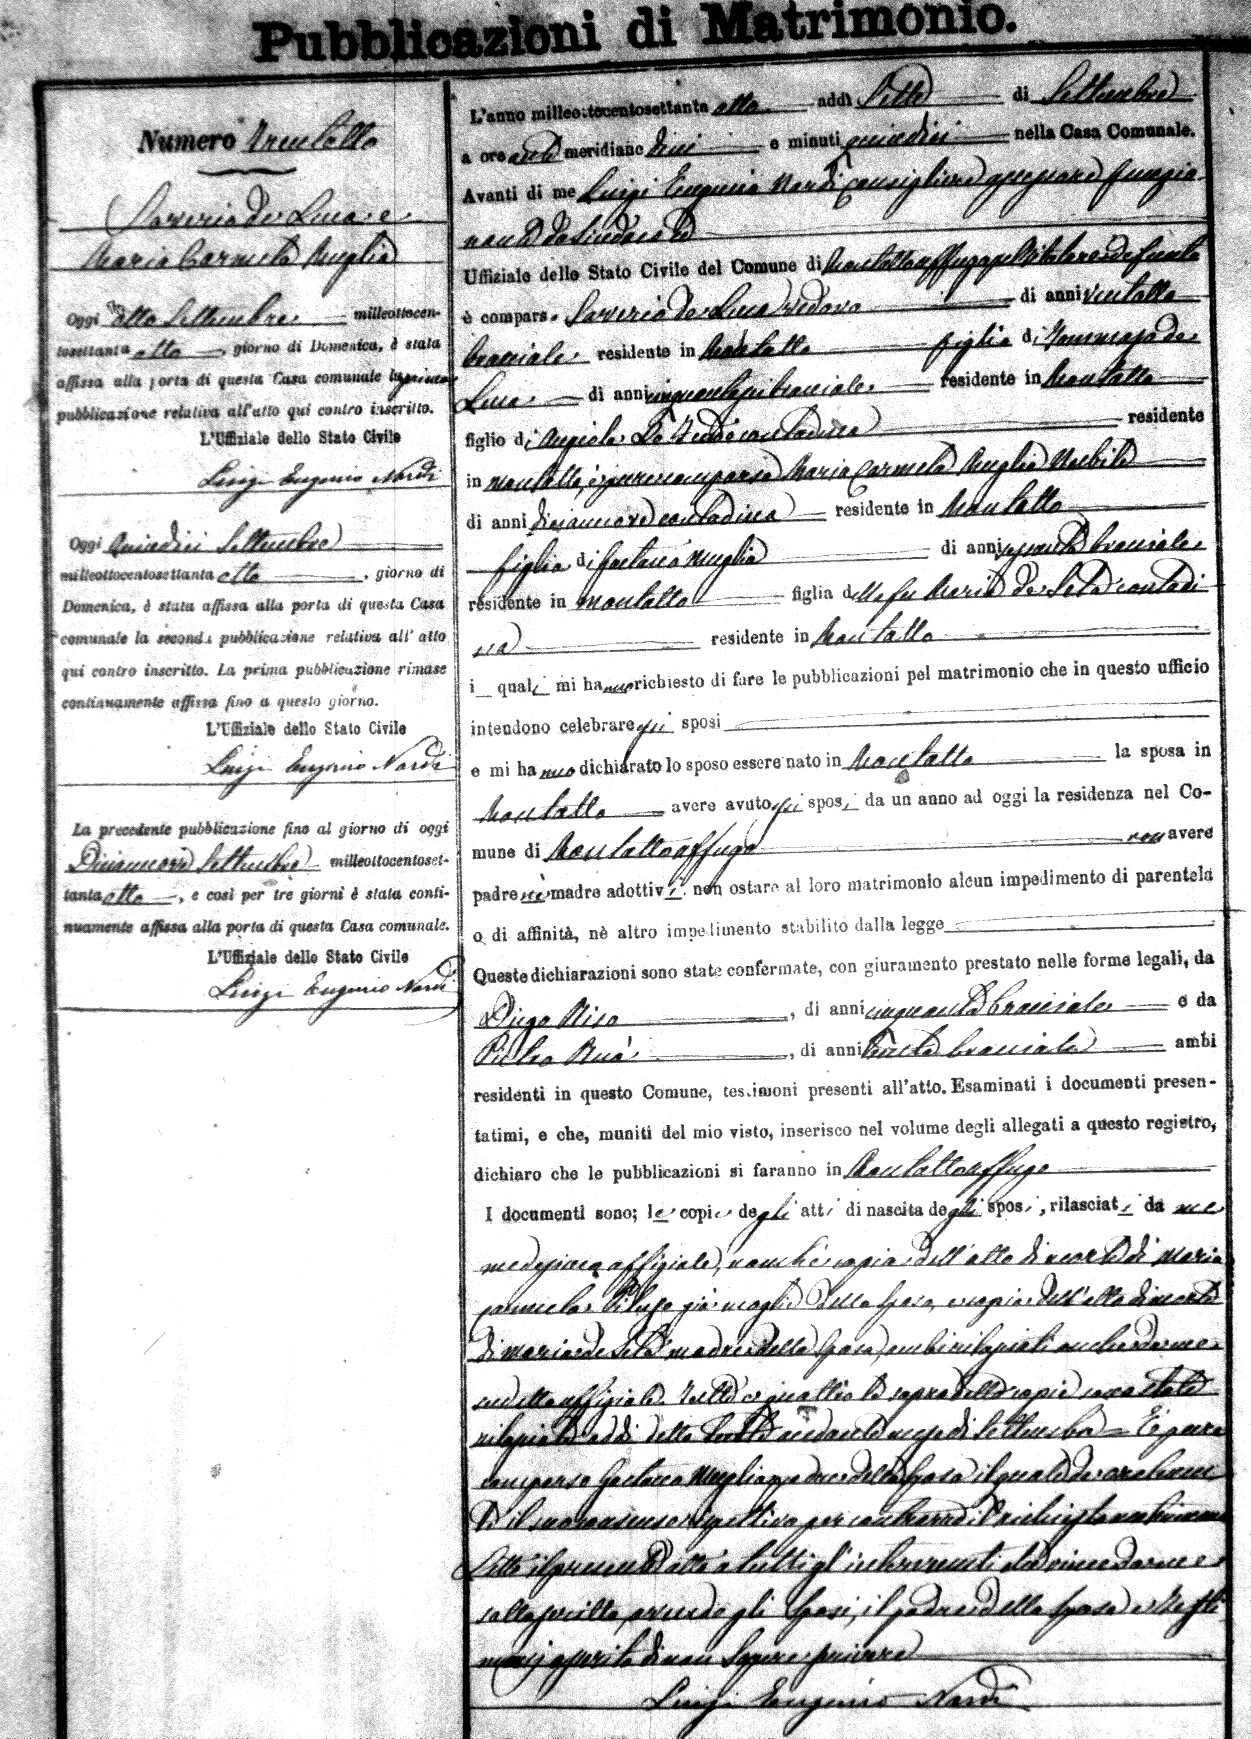 Pubblicazioni di Matrimonio.
Numero Trentotto
Saverio de Luca e
Maria Carmela Muglia
Oggi otto Settembre milleottocen-
tosettanta otto, giorno di Domenica, è stata
affissa alla porta di questa Casa comunale la prima
pubblicazione relativa all'atto qui contro inscritto.
L'Uffiziale dello Stato Civile
Luigi Eugenio Nardi
Oggi Quindici Settembre
milleottocentosettanta otto, giorno di
Domenica, è stata affissa alla porta di questa Casa
comunale la seconda pubblicazione relativa all' atto
qui contro inscritto. La prima pubblicazione rimase
continuamente affissa fino a questo giorno.
L'Uffiziale dello Stato Civile
Luigi Eugenio Nardi
La precedente pubblicazione fino al giorno di oggi
Diciannove Settembre milleottocentoset-
tanta otto, e così per tre giorni è stata conti-
nuamente affissa alla porta di questa Casa comunale.
L'Uffiziale dello Stato Civile
Luigi Eugenio Nardi
L'anno milleottocentosettanta otto addì Sette di Settembre
a ore anti meridiane dieci e minuti quindici nella Casa Comunale.
Avanti di me Luigi Eugenio Nardi Consigliere assessore funzio
nante da Sindaco ed
Uffiziale dello Stato Civile del Comune di Montaltouffugo
è compars. Saverio de Luca vedovo di anni ventotto
bracciale residente in Montalto figlio di Tommaso de
Luca di anni bracciale residente in Montalto
figlio di Angiola contadina residente
in Montalto, è pure comparsa Maria Carmela Muglia Nubile
di anni diciannove contadina residente in Montalto
figlia di Gaetano Muglia di anni bracciale
residente in Montalto figlia della fu Maria de Seta contadi
na residente in Montalto
i quali mi hanno richiesto di fare le pubblicazioni pel matrimonio che in questo ufficio
intendono celebrare gli sposi
e mi hanno dichiarato lo sposo essere nato in Montalto la sposa in
Montalto avere avuto gli sposi da un anno ad oggi la residenza nel Co-
mune di Montaltouffugo non avere
padre nè madre adottivi non ostare al loro matrimonio alcun impedimento di parentela
o di affinità, nè altro impedimento stabilito dalla legge
Queste dichiarazioni sono state confermate, con giuramento prestato nelle forme legali, da
Diego Riso, di anni cinquanta bracciale e da
Pietro Ruà, di anni trenta bracciale ambi
residenti in questo Comune, testimoni presenti all'atto. Esaminati i documenti presen-
tatimi, e che, muniti del mio visto, inserisco nel volume degli allegati a questo registro,
dichiaro che le pubblicazioni si faranno in Montaltouffugo
I documenti sono; le copie degli atti di nascita degli sposi, rilasciati da me
medesimo uffiziale, nonchè copia dell'atto di morte di Maria
già moglie dello sposo, e copia dell'atto di morte
di Maria de Seta madre della sposa, ambi rilasciati anche da me
suddetto uffiziale. Tutte e quattro le sopradette copie sono state
rilasciate addì sette andante mese di Settembre È pure
comparso Gaetano Muglia padre della sposa il quale
il suo consenso per contrarre il richiesto matrimonio
Letto il presente atto a tutti gl'intervenuti da me
sottoscritto, avendo gli sposi, il padre della sposa e i testi
monj asserito di non sapere scrivere
Luigi Eugenio Nardi